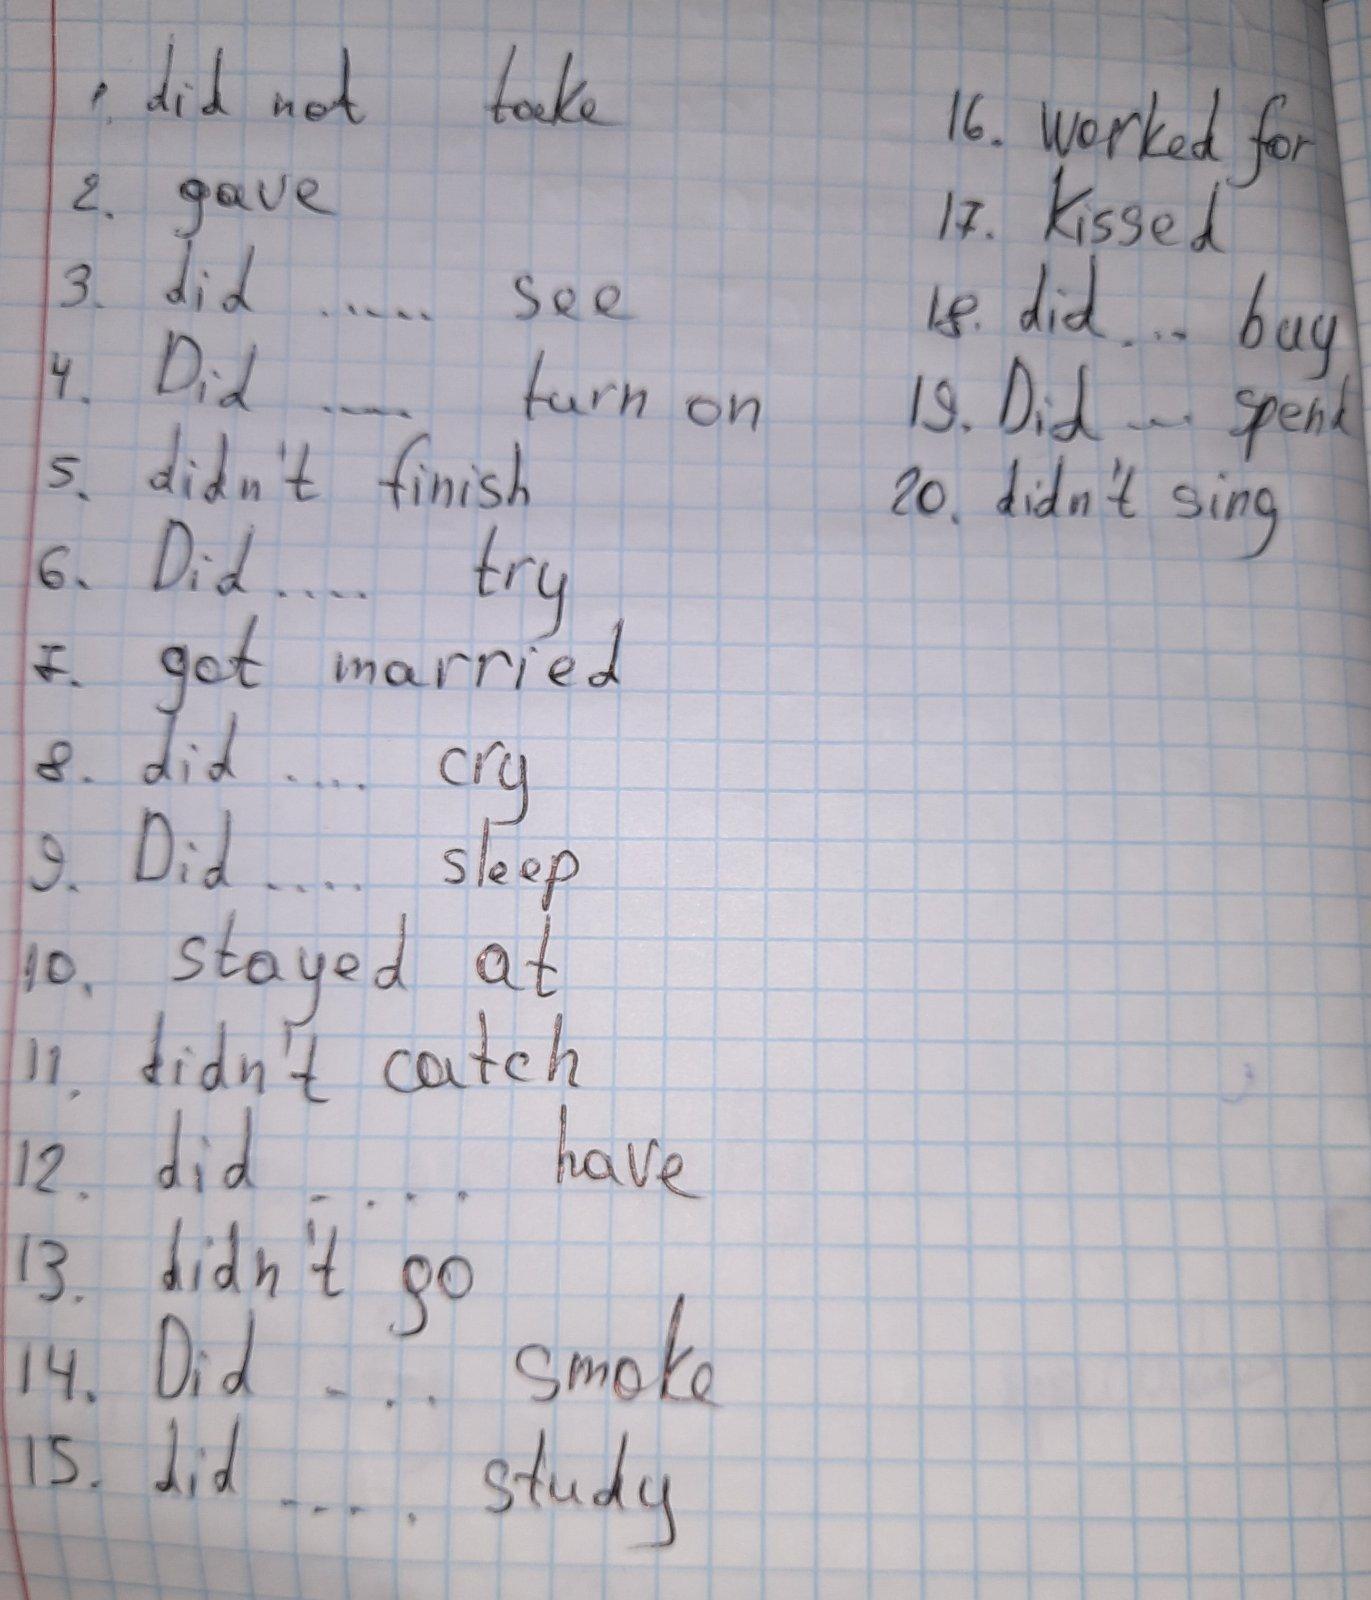 1. did not take
2. gave
3. did ..... see
4. Did ..... turn on
5. didn't finish
6. Did .... try
7. got married
8. did .... cry
9. Did .... sleep
10. stayed at
11. didn't catch
12. did .... have
13. didn't go
14. Did .... smoke
15. did .... study
16. worked for
17. kissed
18. did ... buy
19. Did ... spend
20. didn't sing